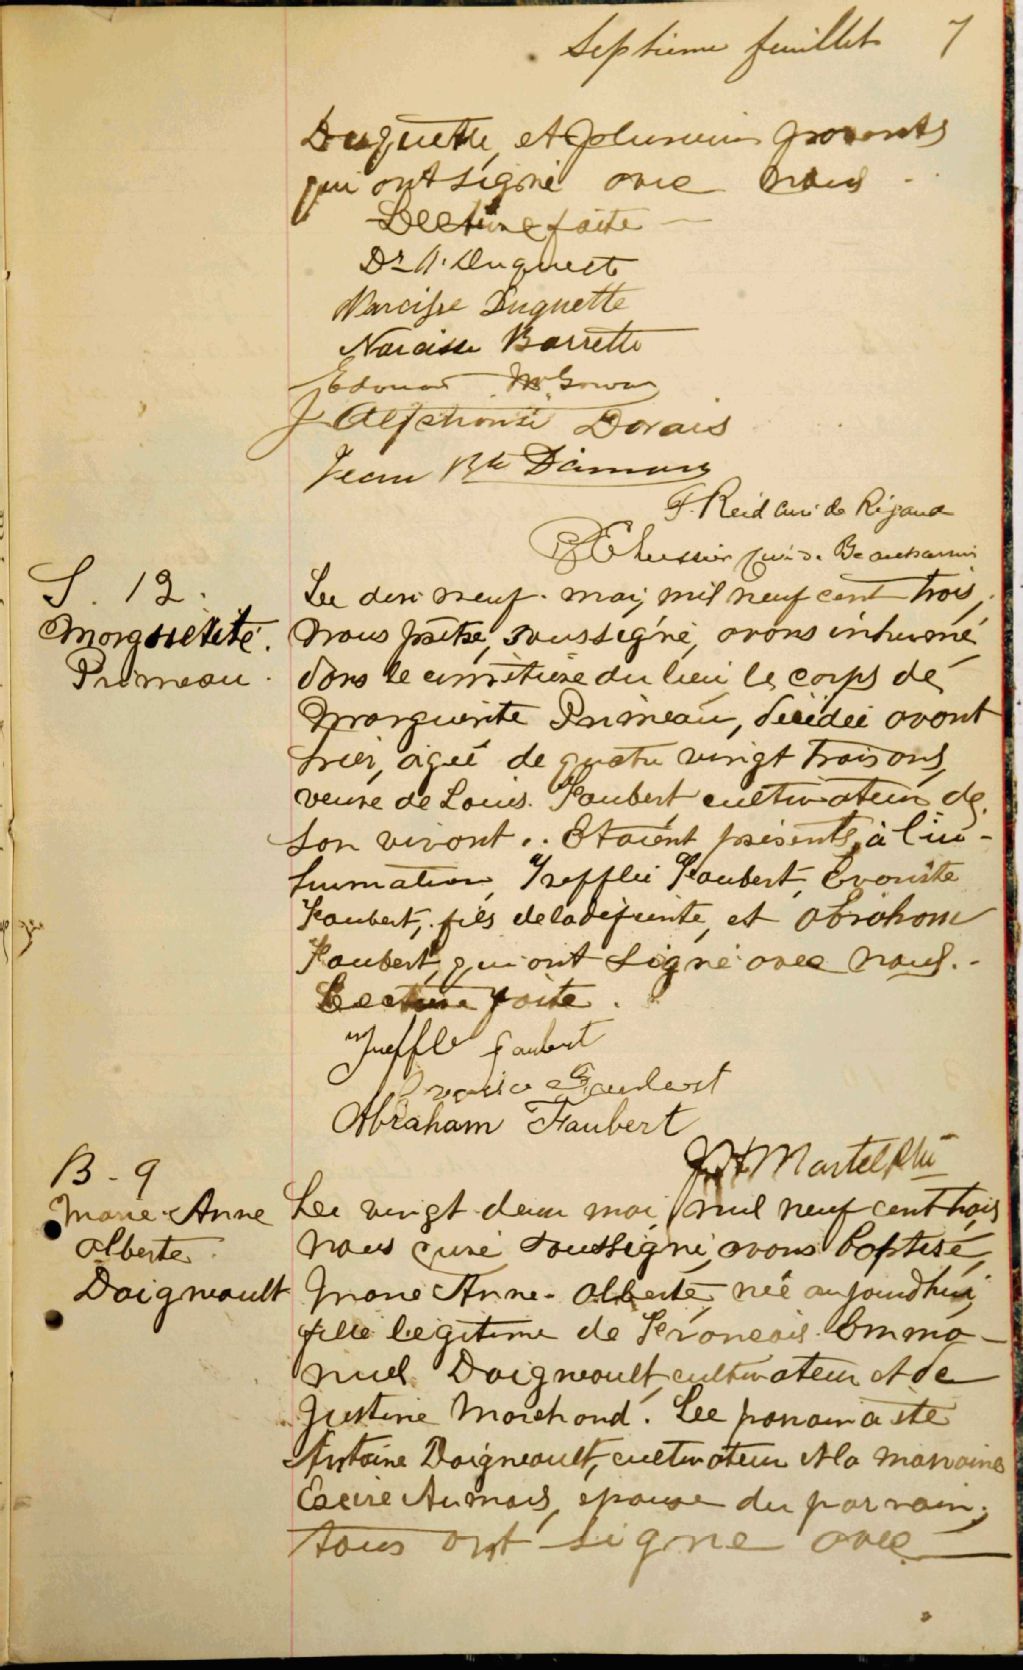 Septième feuillet 7
Duquette, et plusieurs parents
qui ont signé avec nous -
Lecture faite -
Dr A. Duquette
Narcisse Duquette
Narcisse Barrette
Edouard McGowan
J Alphonse Dorais
Jean Bte
F. Reid curé de Rigaud
Lussier curé de Beauharnois
S. 12.
Marguerite.
Primeau.
Le dix neuf mai, mil neuf cent trois,
nous prêtre, soussigné, avons inhumé
dans le cimetière du lieu le corps de
Marguerite Primeau, décédée avant
hier, agée de quatre vingt trois ans,
veuve de Louis Faubert cultivateur de
son vivant.. Etaient présents à l'in-
humation, Trefflé Faubert, Evariste
Faubert, fils de la défunte, et Abraham
Faubert, qui ont signé avec nous. -
Lecture faite.
Trefflé Faubert
Faubert
Abraham Faubert
Martel Ptre
B - 9
Marie-Anne
Alberte
Daigneault
Le vingt deux mai, mil neuf cent trois
nous curé soussigné, avons baptisé,
Marie Anne-Alberte, née aujourd'hui,
fille légitime de François Emma-
nuel Daigneault, cultivateur et de
Justine Marchand. Le parrain a été
Antoine Daigneault, cultivateur et la marraine
Exire Aumais, epouse du parrain;
tous ont signé avec